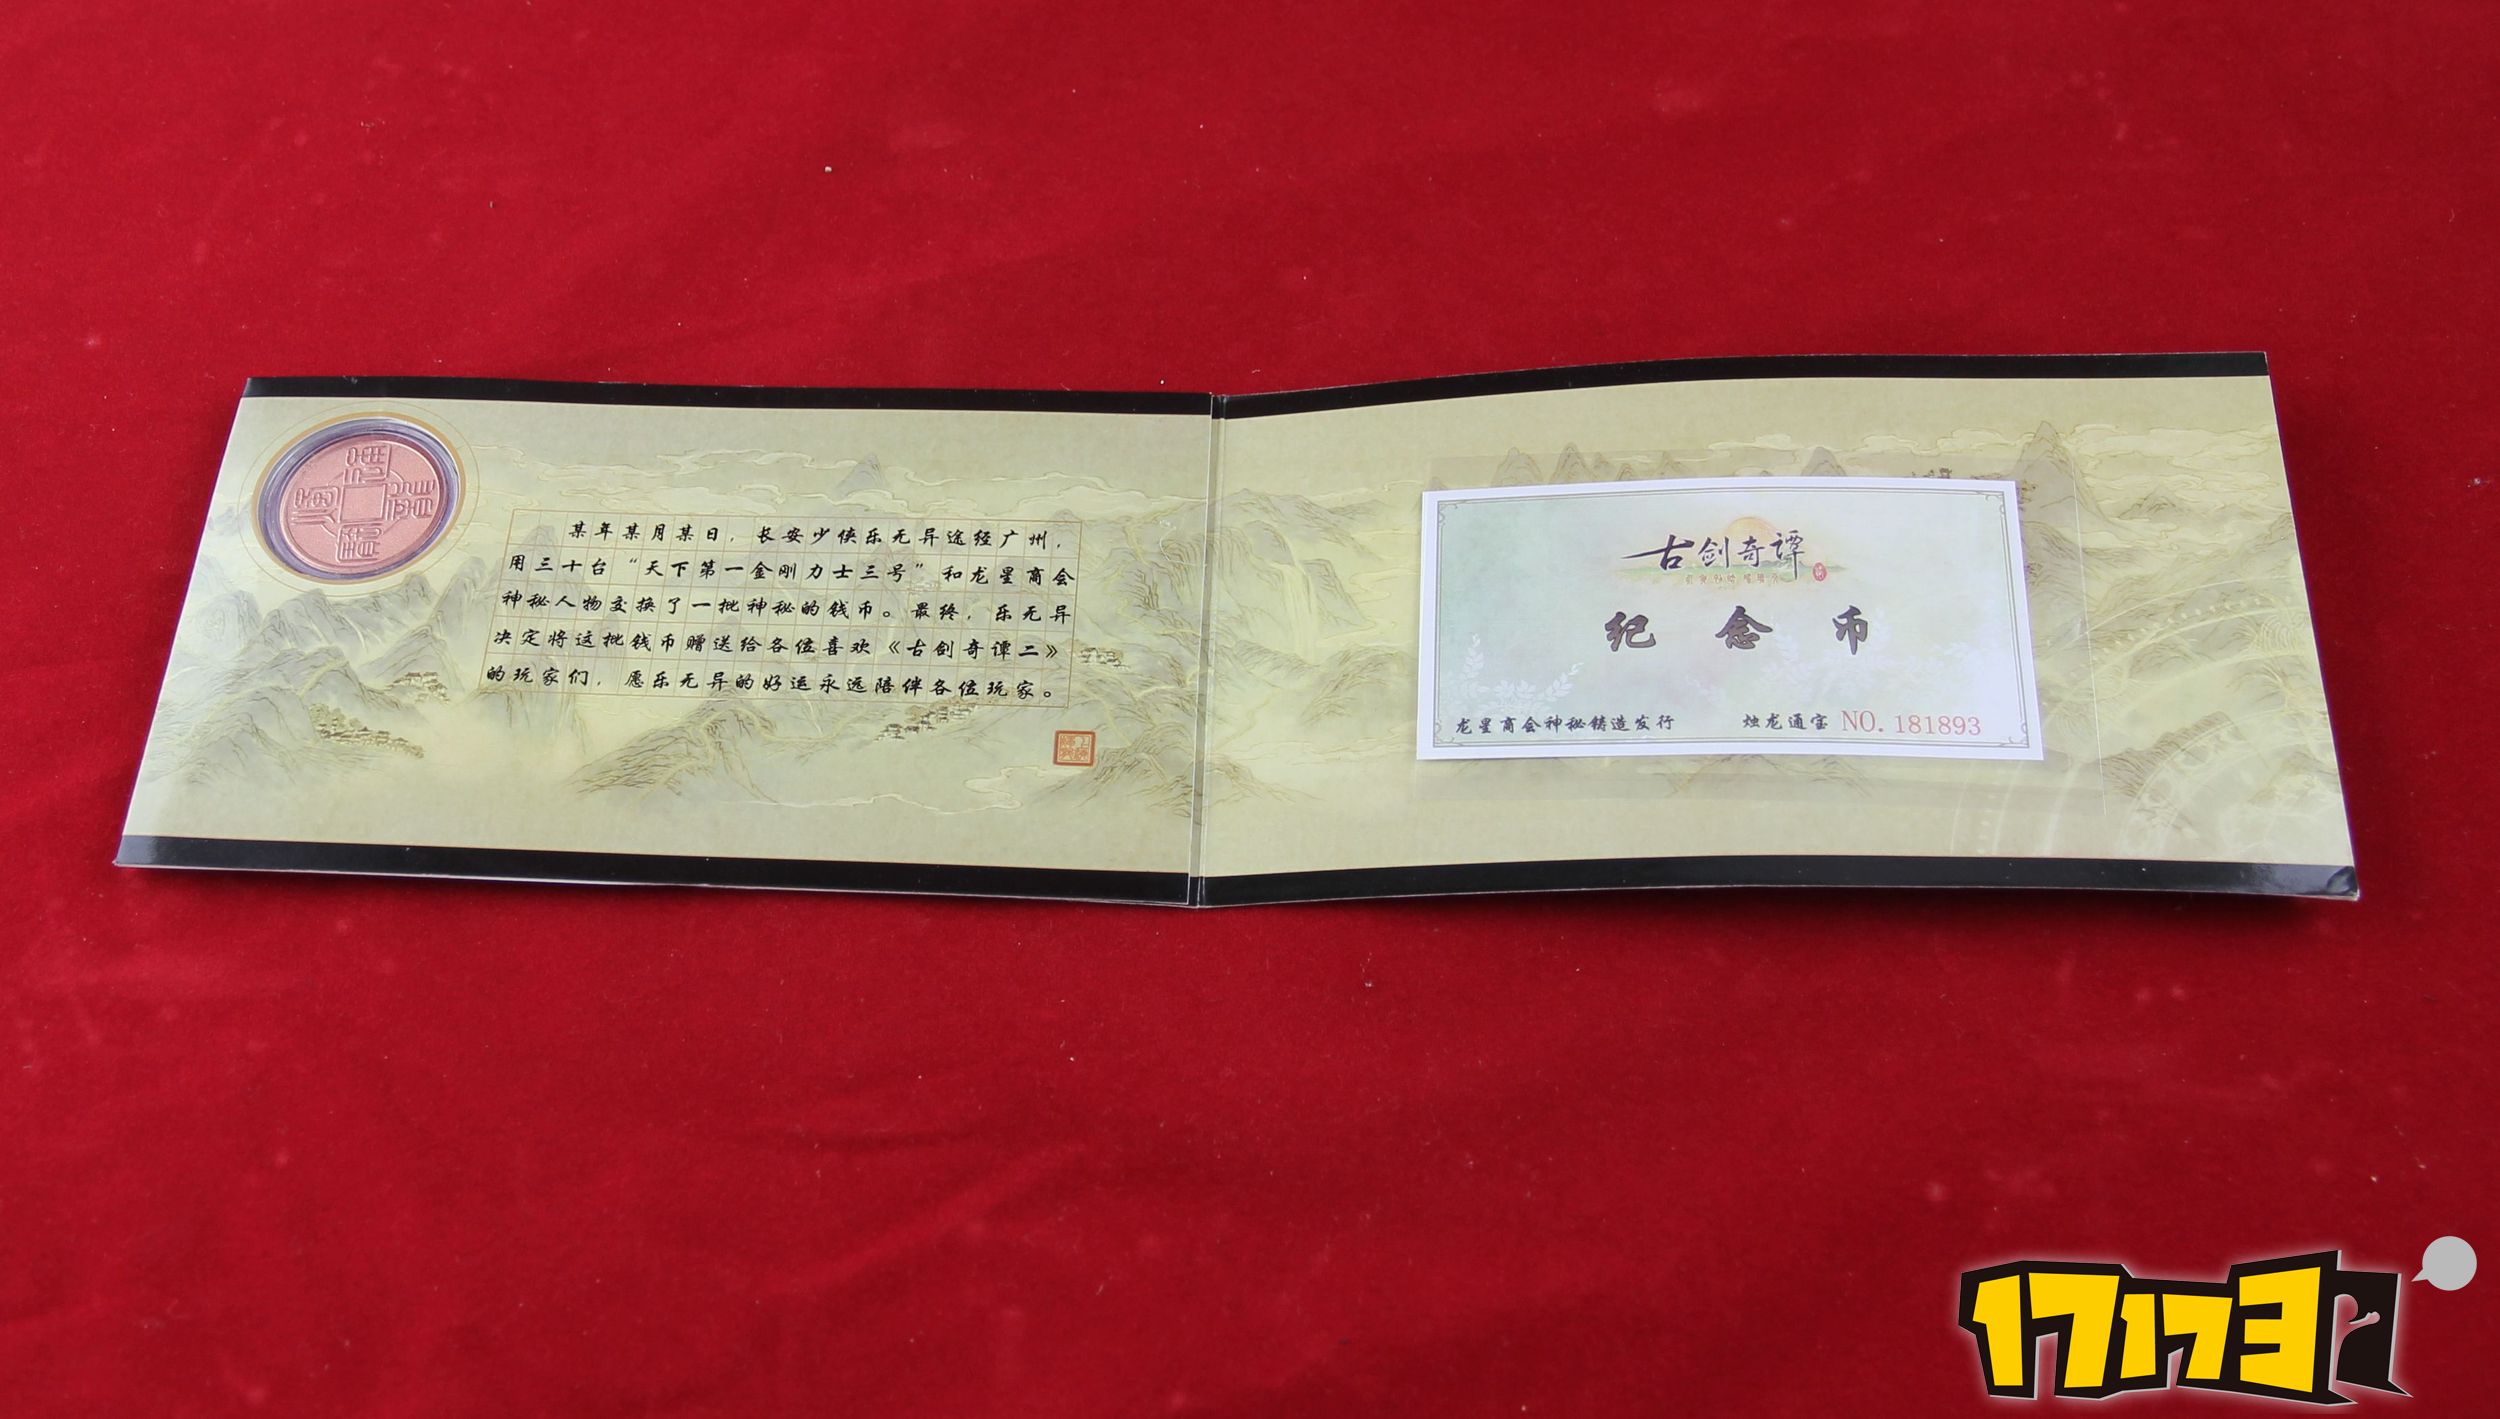 某年某月某日，长安少侠乐无异途经广州，
用三十台“天下第一金刚力士三号”和龙星商会
神秘人物交换了一批神秘的钱币。最终，乐无异
决定将这批钱币赠送给各位喜欢《古剑奇谭二》
的玩家们，愿乐无异的好运永远陪伴各位玩家。
古剑奇谭
纪念币
龙星商会神秘铸造发行 烛龙通宝 NO. 181893
17173